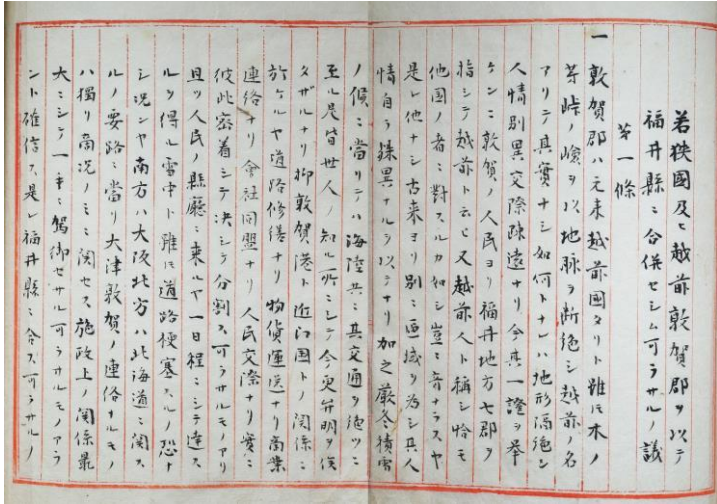 若狭國及ヒ越前敦賀郡ヲ以テ
福井縣ニ合併セシム可ラサルノ議
第一條
一敦賀郡ハ元来越前國タリト雖𪜈木ノ
芽峠ノ嶮ヲ以地脉ヲ断絶シ越前ノ名
アリテ其實ナシ如何トナレハ地形隔絶シ
人情別異交際疎遠ナリ今其一證ヲ挙
ケンニ敦賀ノ人民ヨリ福井地方七郡ヲ
指シテ越前ト云ヒ又越前人ト称シ恰モ
他国ノ者ニ對スルカ如シ豈ニ音ナラスヤ
是レ他ナシ古来ヨリ別ニ区域ヲ為シ其人
情自ラ殊異ナルヲ以テナリ加之厳冬積雪
ノ候ニ當リテハ海陸共ニ其交通ヲ絶ツニ
至ル是皆世人ノ知ル所ニシテ今更弁明ヲ俟
タザルナリ抑敦賀港ト近江国トノ関係ニ
於ケルヤ道路修繕ナリ物貨運送ナリ商業
連絡ナリ會社同盟ナリ人民交際ナリ實ニ
彼此密着シテ决シテ分割ス可ラサルモノアリ
且ツ人民ノ縣廳ニ来ルヤ一日程ニシテ達ス
ルヲ得ル雪中ト雖𪜈道路梗塞スルノ恐ナ
シ况ンヤ南方ハ大阪北方ハ北海道ニ関ス
ルノ要路ニ當リ大津敦賀ノ連絡ナルモノ
ハ獨リ商况ノミニ関セス施政上ノ関係最
大ニシテ一手ニ駕御セサル可ラサルモノアラ
ント確信ス是レ福井縣ニ合ス可ラサルノ